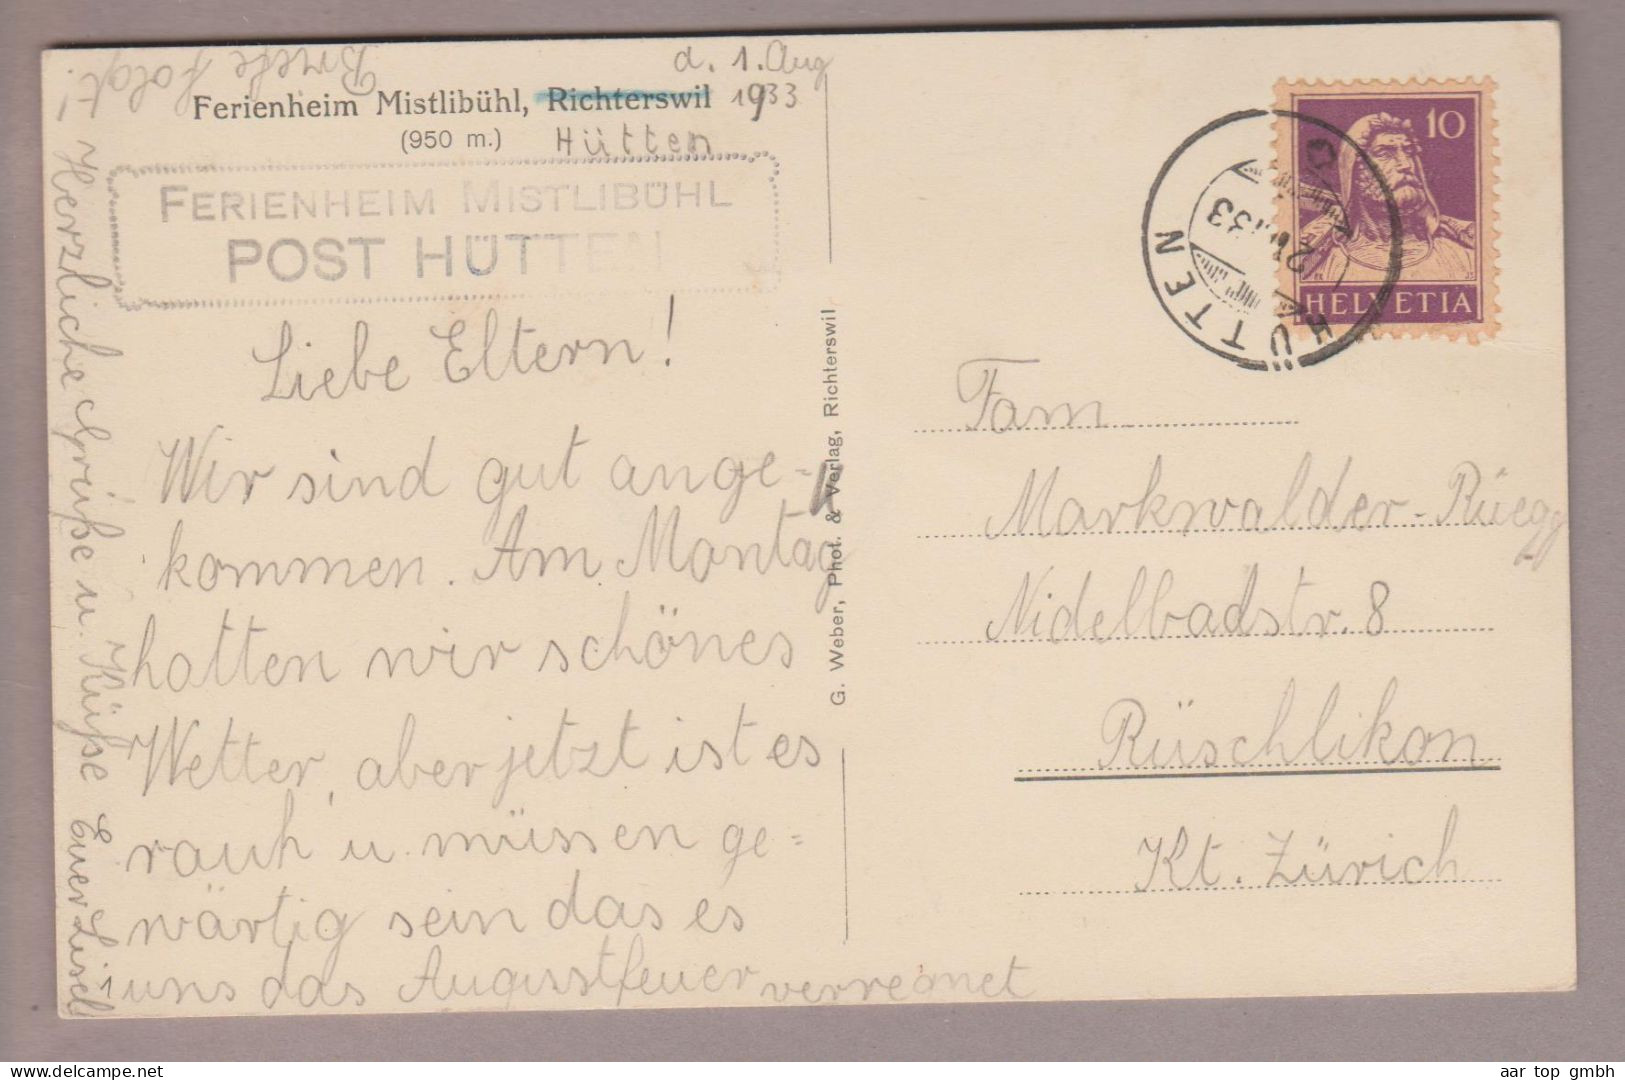 d. 1. Aug
1933
Ferienheim Mistlibühl, Richterswil
(950 m.) Hütten
FERIENHEIM MISTLIBÜHL
POST HÜTTEN
Liebe Eltern!
Wir sind gut ange-
kommen. Am Montag
hatten wir schönes
Wetter, aber jetzt ist es
rauh u. müssen ge-
wärtig sein das es
uns das Augustfeuer verregnet
Herzliche Grüße u. Küße Euer Lisel
Briefe folgt!
G. Weber, Phot. & Verlag, Richterswil
10
HELVETIA
HÜTTEN
33
Fam.
Markwalder-Rüegg
Nidelbadstr. 8
Rüschlikon
Kt. Zürich
delcampe.net
aar top gmbh